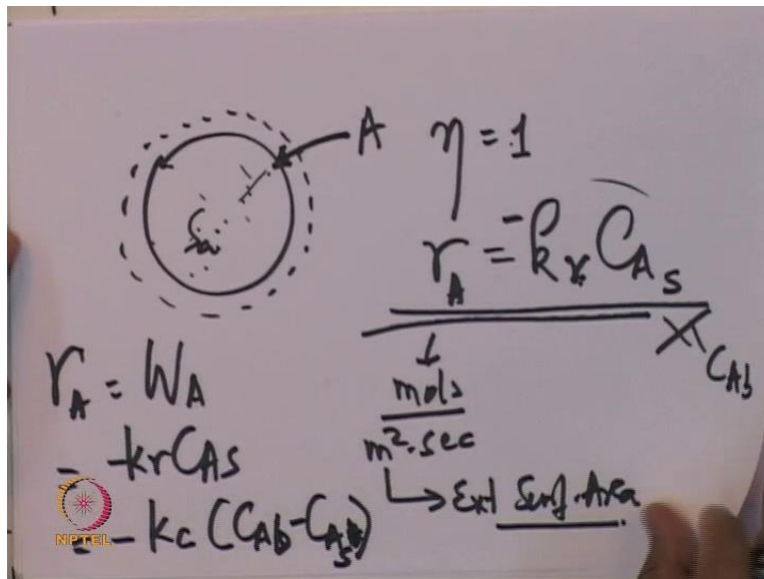 A
η = 1
Sa
r_A = -k_r C_As
C_Ab
mols
m². sec
Ext Surf. Area.
r_A = W_A
= -k_r C_As
= -k_c (C_Ab - C_As)
NPTEL